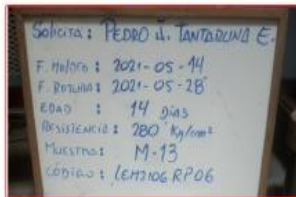 Solicita: PEDRO J. TANTARUNA E.
F. MOLDEO : 2021-05-14
F. ROTURA : 2021-05-28
EDAD : 14 DIAS
RESISTENCIA : 280 Kg/cm²
MUESTRA : M-13
CÓDIGO : LEM2106RP06